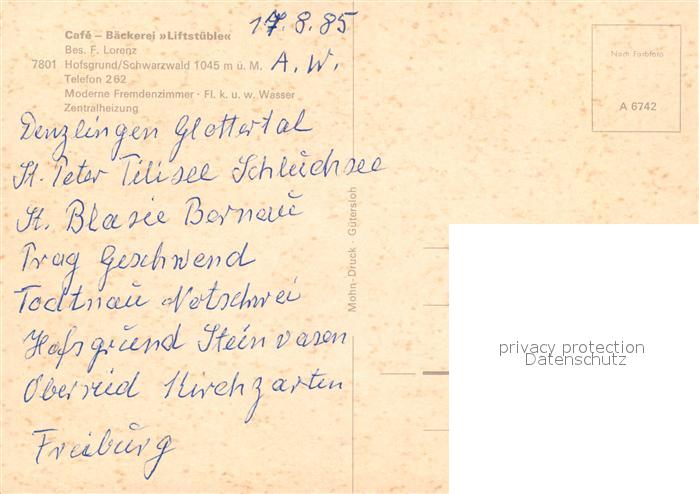 17.8.85
Café – Bäckerei »Liftstüble«
Bes. F. Lorenz
7801 Hofsgrund/Schwarzwald 1045 m ü. M.
A. W.
Telefon 262
Moderne Fremdenzimmer · Fl. k. u. w. Wasser
Zentralheizung
Nach Farbfoto
A 6742
Denzlingen Glottertal
St. Peter Titisee Schluchsee
St. Blasie Bernau
Prag Geschwend
Todtnau Notschrei
Hofsgrund Steinwasen
Oberried Kirchzarten
Freiburg
Mohn-Druck · Gütersloh
privacy protection
Datenschutz